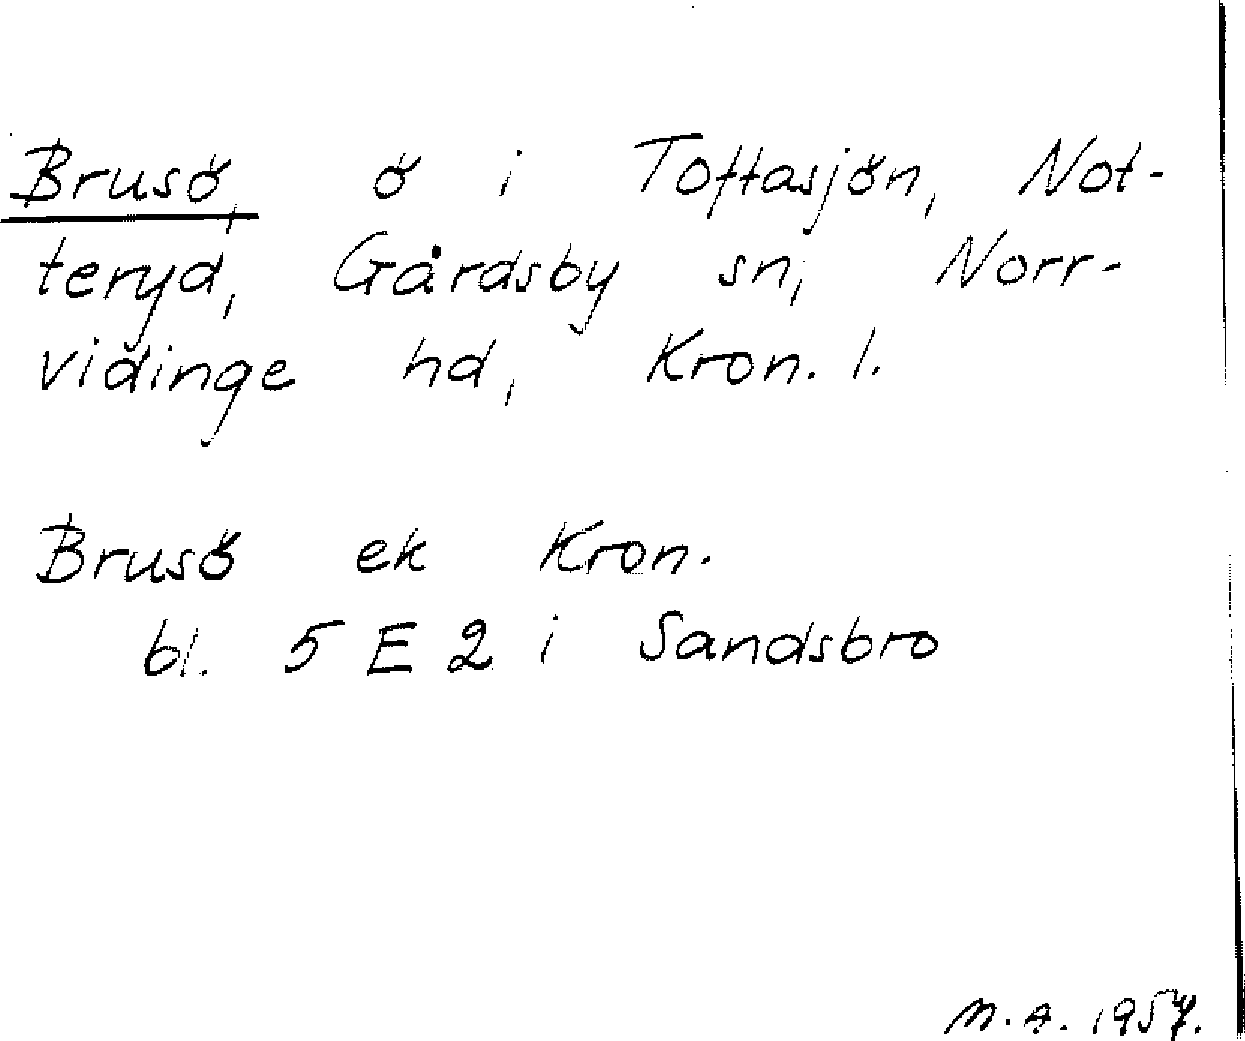 Brusö, ö i Toftasjön, Not-
teryd, Gårdsby sn, Norr-
vidinge hd, Kron. l.
Brusö ek Kron.
bl. 5 E 2 i Sandsbro
M.A. 1957.